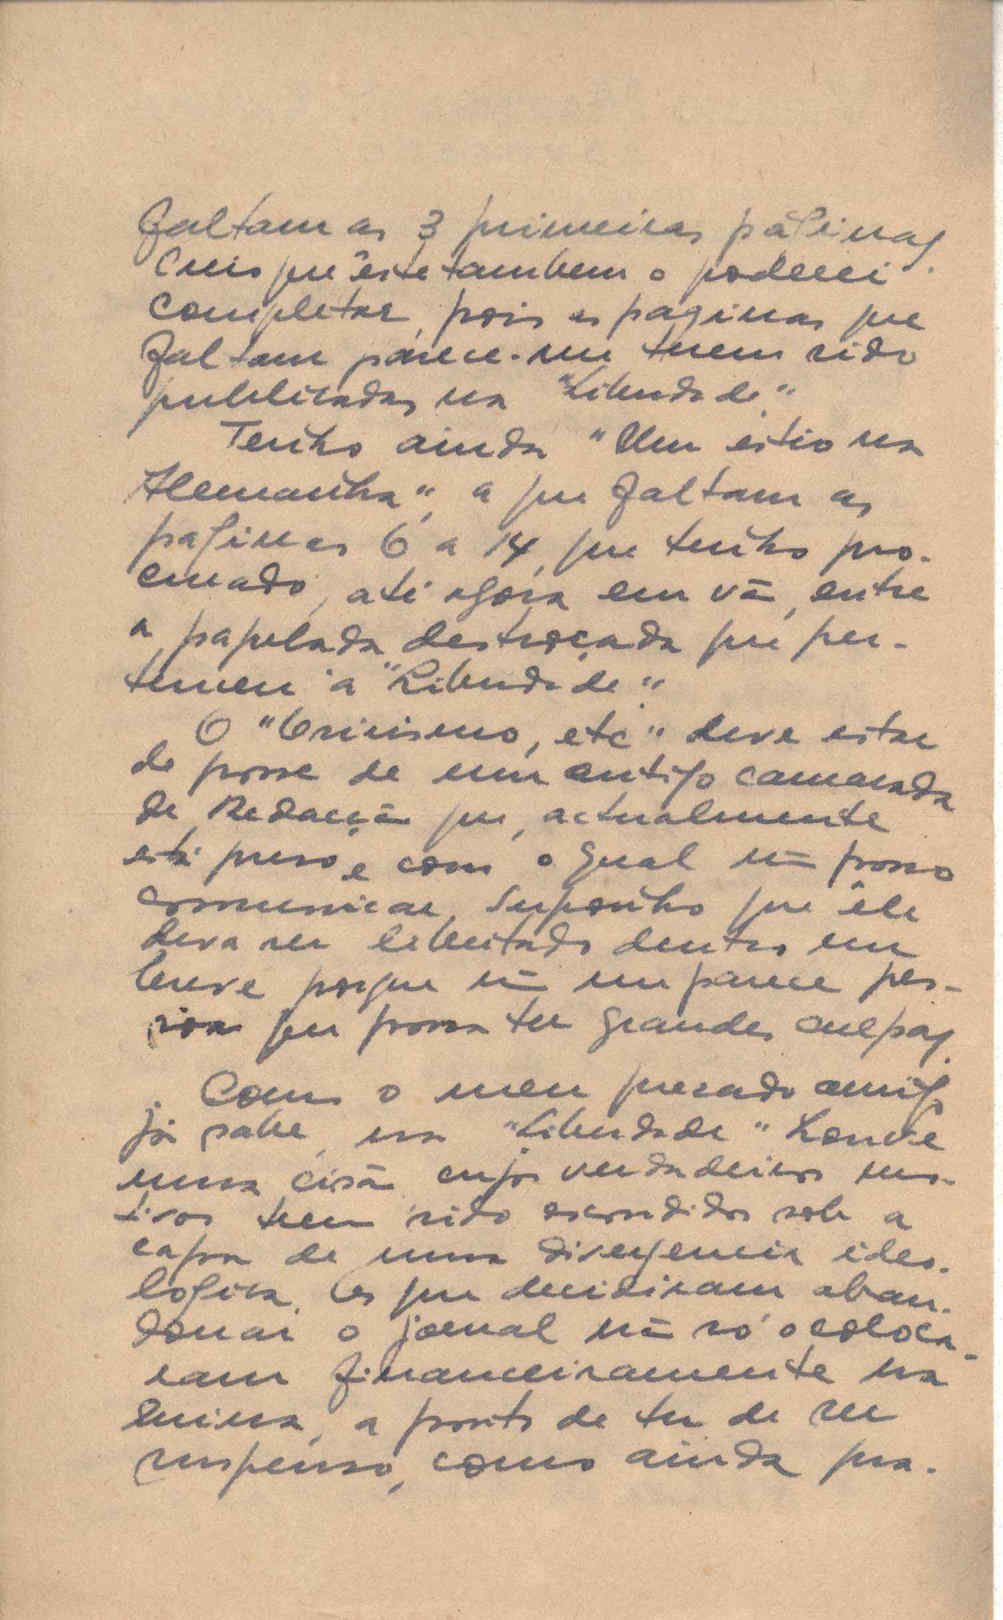 faltam as 3 primeiras páginas.
Creio que êste tambem o poderei
completar, pois as paginas que
faltam parece-me terem sido
publicadas na "Liberdade".
Tenho ainda "Um estio na
Alemanha", a que faltam as
paginas 6 a 14, que tenho pro-
curado, até agora em vão, entre
a papelada destroçada que per-
tenceu á "Liberdade".
O "Cinismo, etc" deve estar
de posse de um antigo camarada
da Redacção que, actualmente
está preso e com o qual não posso
comunicar. Suponho que êle
deva ser libertado dentro em
breve porque não me parece pes-
soa que possa ter grandes culpas.
Como o meu prezado amigo
já sabe, na "Liberdade" houve
uma cisão cujos verdadeiros mo-
tivos teem sido escondidos sob a
capa de uma divergencia ideo-
logica. Os que decidiram aban-
donar o jornal não só o coloca-
ram financeiramente na
ruina, a ponto de ter de ser
suspenso, como ainda pra-